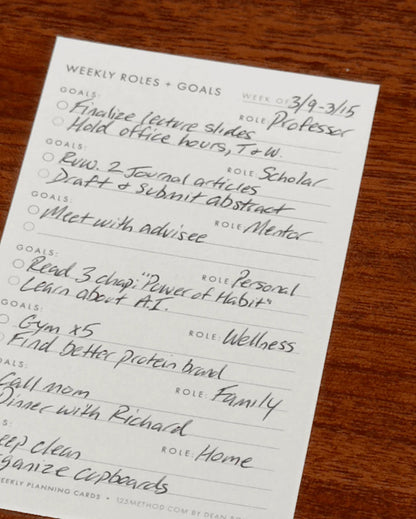 WEEKLY ROLES + GOALS WEEK OF 3/9-3/15
GOALS: ROLE: Professor
Finalize lecture slides
Hold office hours, T & W.
GOALS: ROLE: Scholar
Rvw. 2 Journal articles
Draft & submit abstract
GOALS: ROLE: Mentor
Meet with advisee
GOALS: ROLE: Personal
Read 3 chap: "Power of Habit"
Learn about A.I.
GOALS: ROLE: Wellness
Gym x5
Find better protein brand
OALS: ROLE: Family
Call mom
Dinner with Richard
S: ROLE: Home
eep clean
ganize cupboards
WEEKLY PLANNING CARDS • 123METHOD.COM BY DEAN